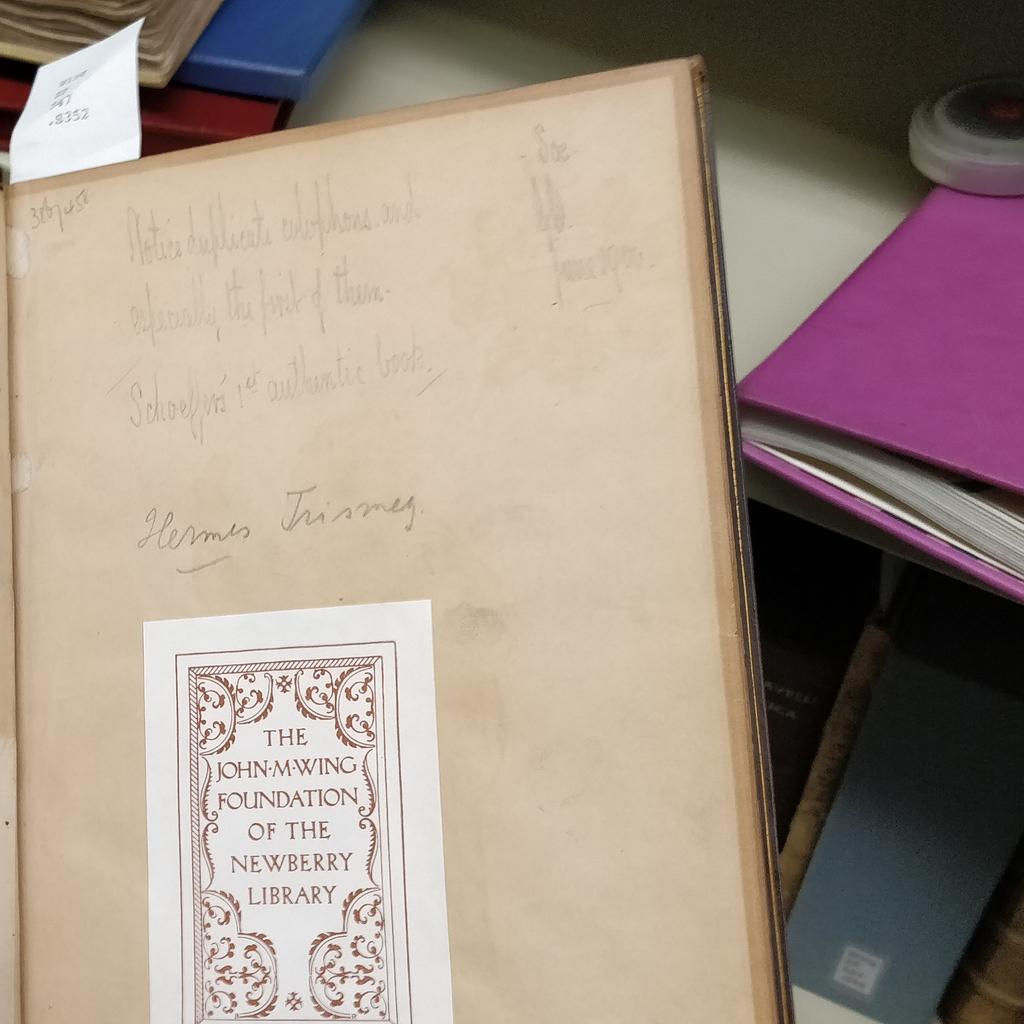 .8352
Notice duplicate colophons and
especially the first of them.
Schoeffer's 1st authentic book.
June
Hermes Trismeg.
THE
JOHN·M·WING
FOUNDATION
OF THE
NEWBERRY
LIBRARY